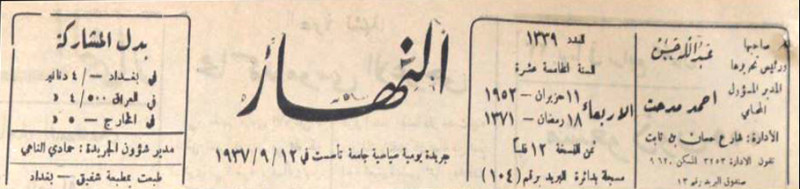 صاحبها
ورئيس تحريرها
عبد الله حسن
المدير المسؤول
المحامي
احمد مدحت
الادارة: شارع حسان بن ثابت
تلفون الادارة ٣٢٥٣ المسكن ٩٦٢٠
صندوق البريد رقم ١٣
العدد ١٣٣٩
السنة الخامسة عشرة
الاربعاء
١١ حزيران - ١٩٥٢
١٨ رمضان - ١٣٧١
ثمن النسخة ١٢ فلساً
مسجلة بدائرة البريد برقم (١٠٤)
النهار
جريدة يومية سياسية جامعة تأسست في ١٩٣٧/٩/١٢
بدل المشاركة
في بغداد -/٤ دنانير
في العراق ٤/٥٠٠ د
في الخارج -/٥ د
مدير شؤون الجريدة: حمادي الناهي
طبعت بمطبعة شفيق - بغداد